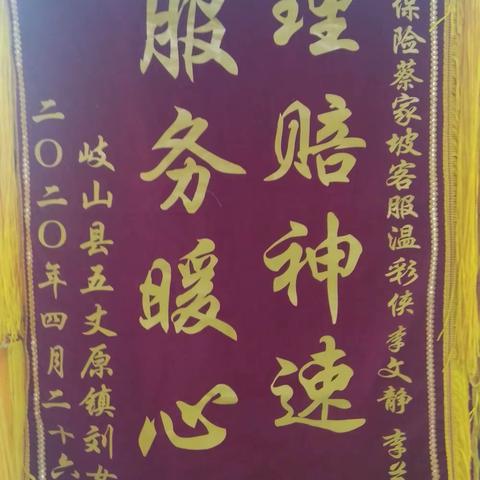 保险蔡家坡客服温彩侠李文静李
理赔神速
服务暖心
岐山县五丈原镇刘
二〇二〇年四月二十六